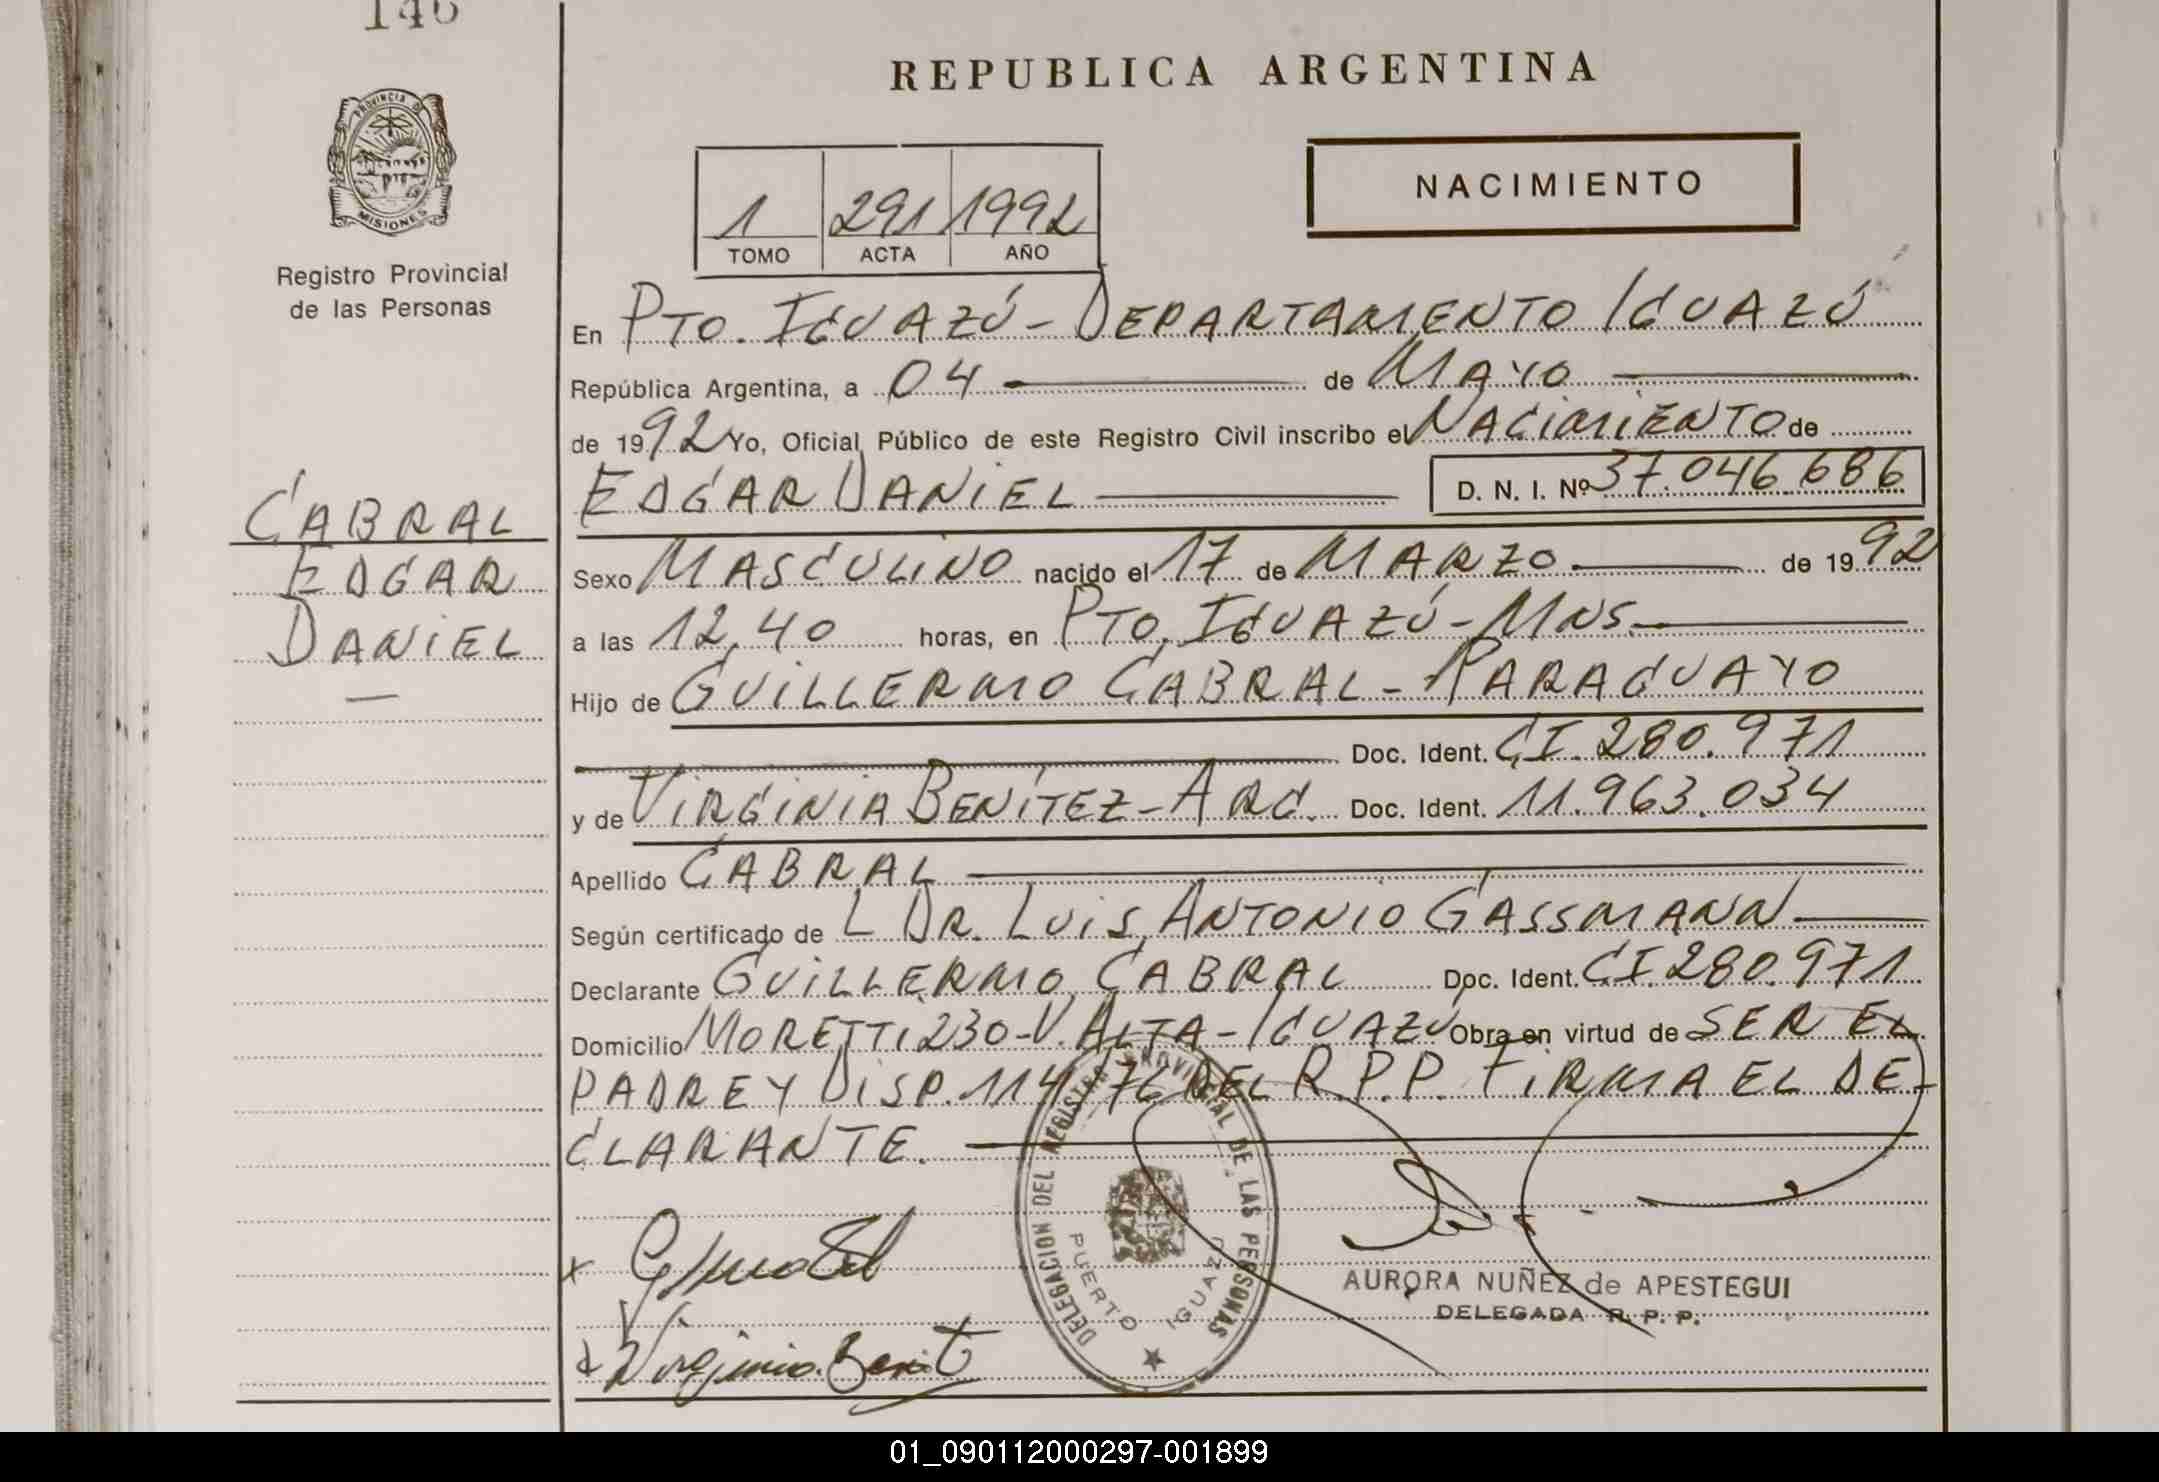 146
REPUBLICA ARGENTINA
PROVINCIA DE
MISIONES
Registro Provincial
de las Personas
NACIMIENTO
1 291 1992
TOMO ACTA AÑO
En PTO. IGUAZÚ - DEPARTAMENTO IGUAZÚ
República Argentina, a 04 de MAYO
de 1992 Yo, Oficial Público de este Registro Civil inscribo el NACIMIENTO de
EDGAR DANIEL D. N. I. Nº 37.046.686
CABRAL
EDGAR
DANIEL
Sexo MASCULINO nacido el 17 de MARZO de 1992
a las 12,40 horas, en PTO. IGUAZÚ - MNS.
Hijo de GUILLERMO CABRAL - PARAGUAYO
Doc. Ident. CI. 280.971
y de VIRGINIA BENÍTEZ - ARG. Doc. Ident. 11.963.034
Apellido CABRAL
Según certificado de L DR. LUIS ANTONIO GASSMANN
Declarante GUILLERMO CABRAL Doc. Ident. CI. 280.971
Domicilio MORETTI 230 - V. ALTA - IGUAZÚ Obra en virtud de SER EL
PADRE Y DISP. 114/76 DEL R.P.P. FIRMA EL DE-
CLARANTE.
DELEGACION DEL REGISTRO PROVINCIAL DE LAS PERSONAS
PUERTO IGUAZU
AURORA NUÑEZ de APESTEGUI
DELEGADA R. P. P.
x
Virginia Benit
01_090112000297-001899